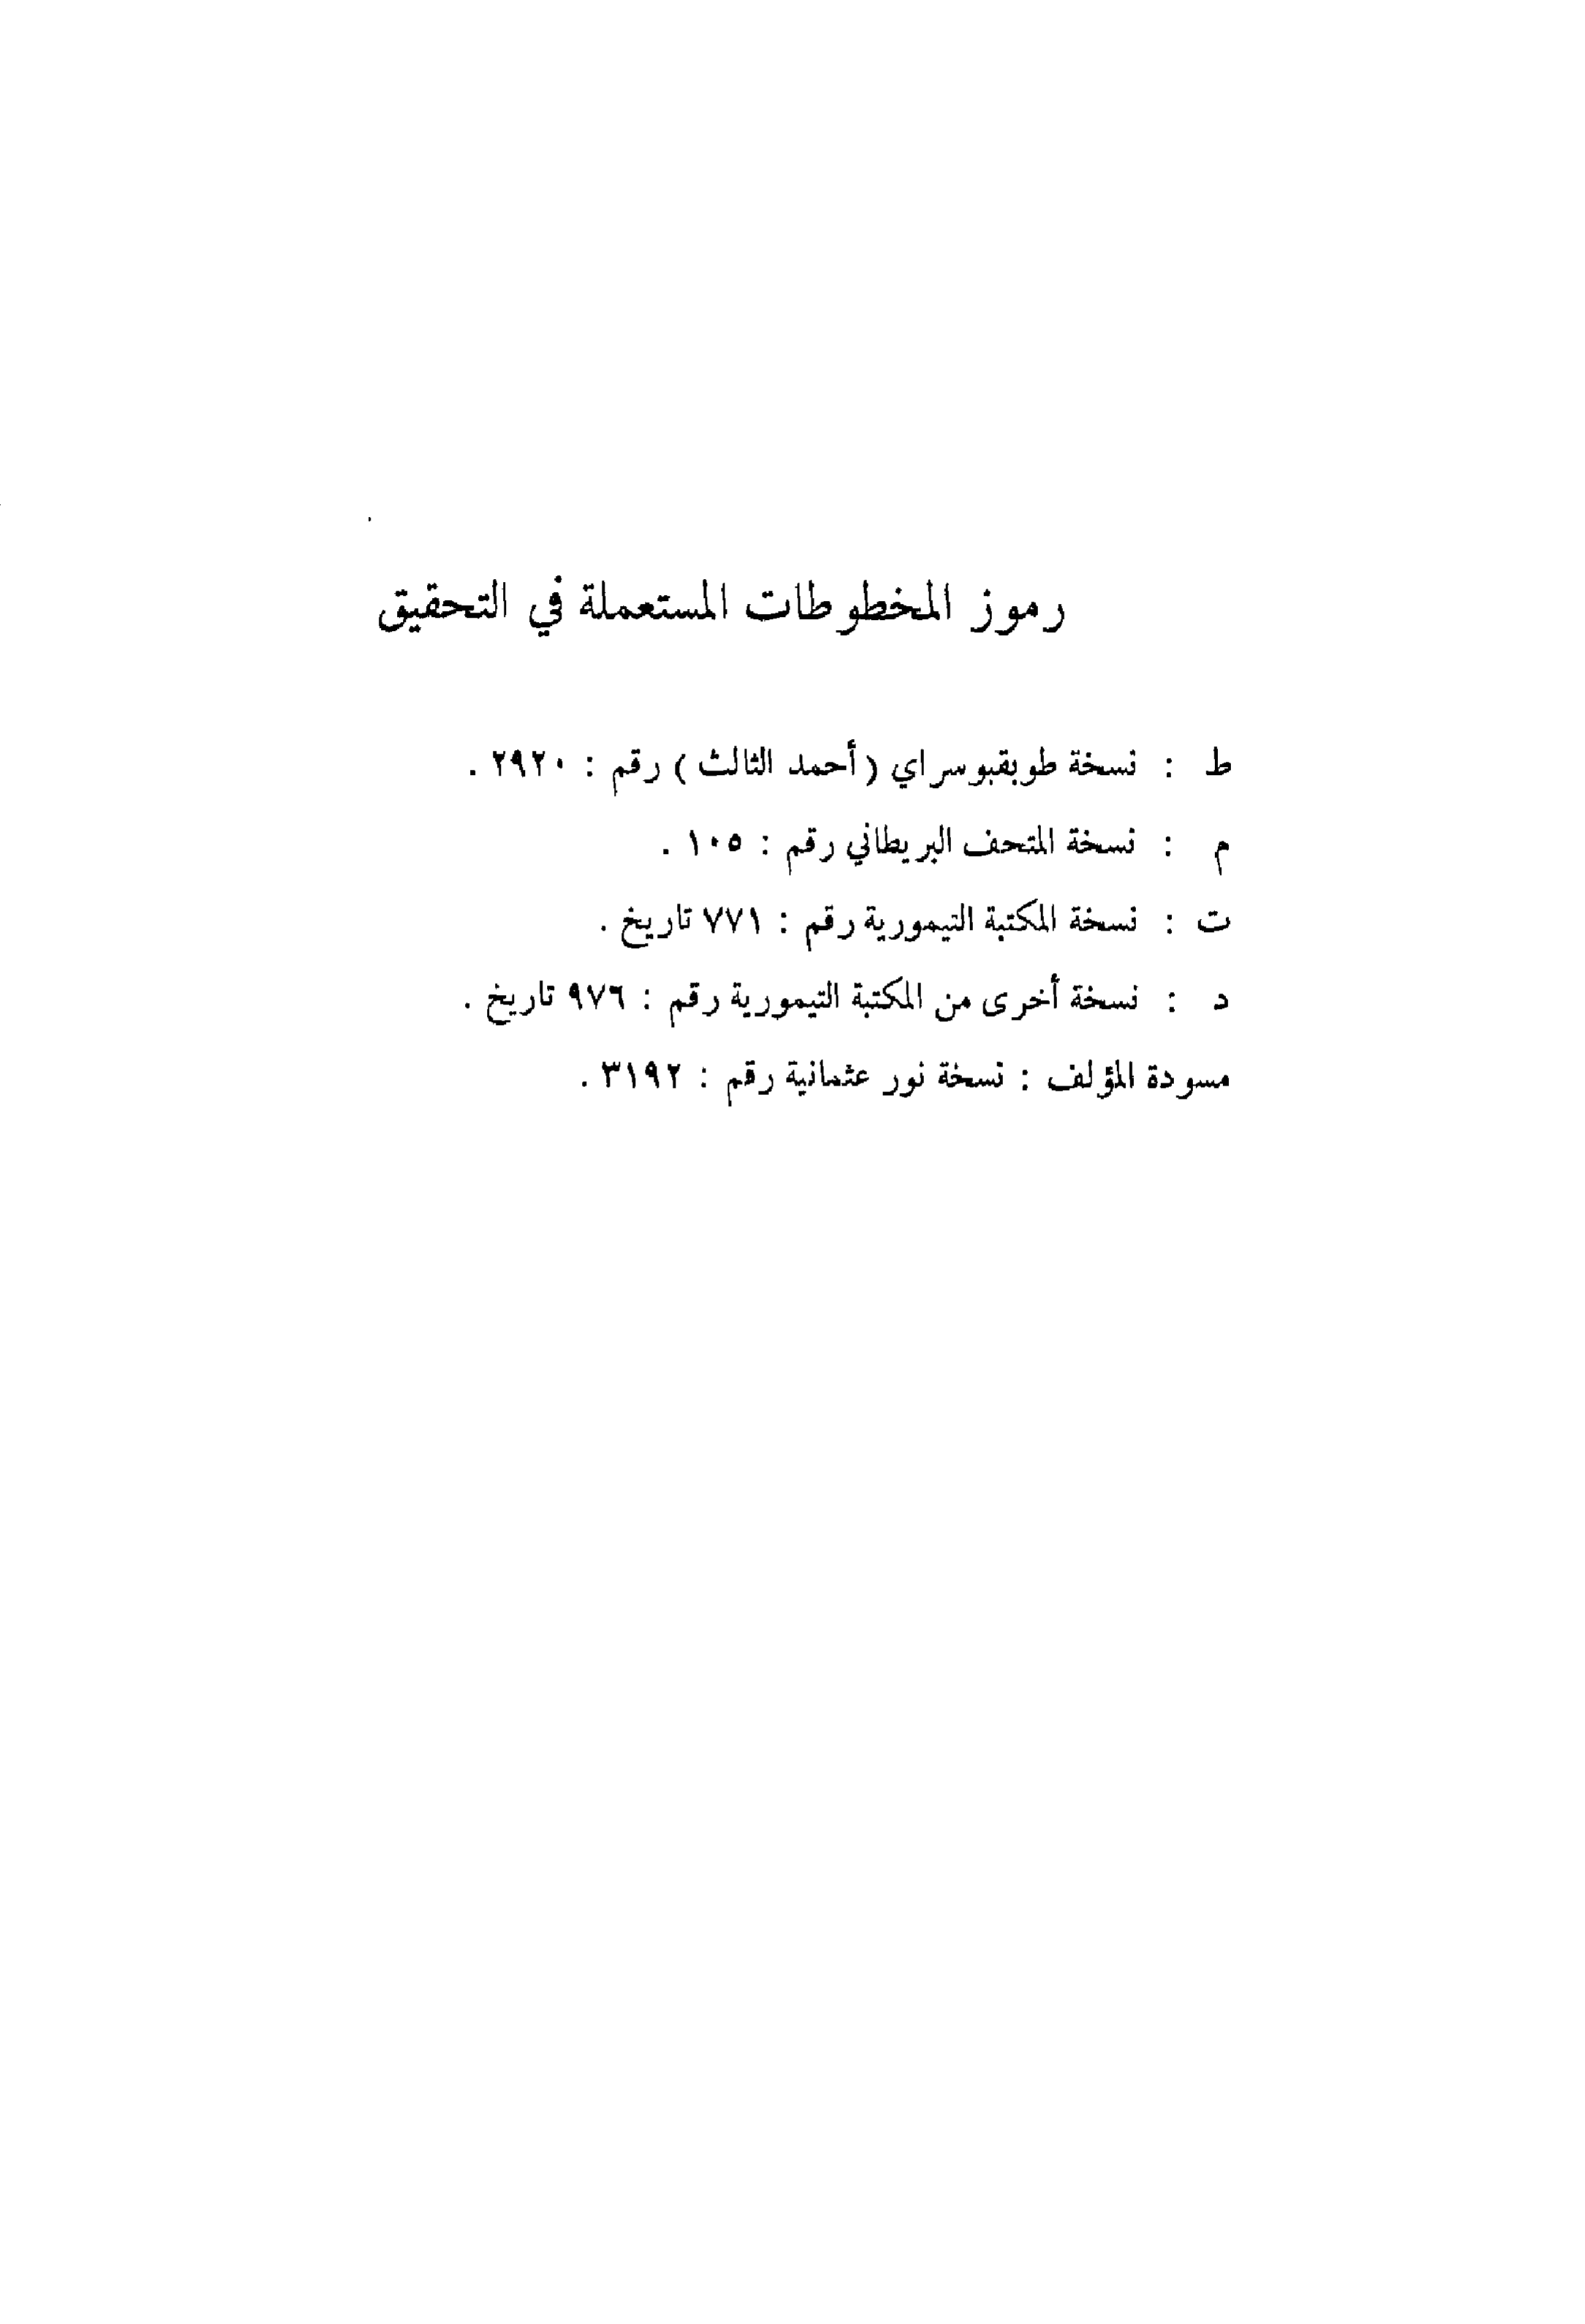 رموز المخطوطات المستعملة في التحقيق
ط : نسخة طوبقبوسراي (أحمد الثالث) رقم : ٢٩٢٠ .
م : نسخة المتحف البريطاني رقم : ١٠٥ .
ت : نسخة المكتبة التيمورية رقم : ٧٧١ تاريخ .
د : نسخة أخرى من المكتبة التيمورية رقم : ٩٧٦ تاريخ .
مسودة المؤلف : نسخة نور عثمانية رقم : ٣١٩٢ .